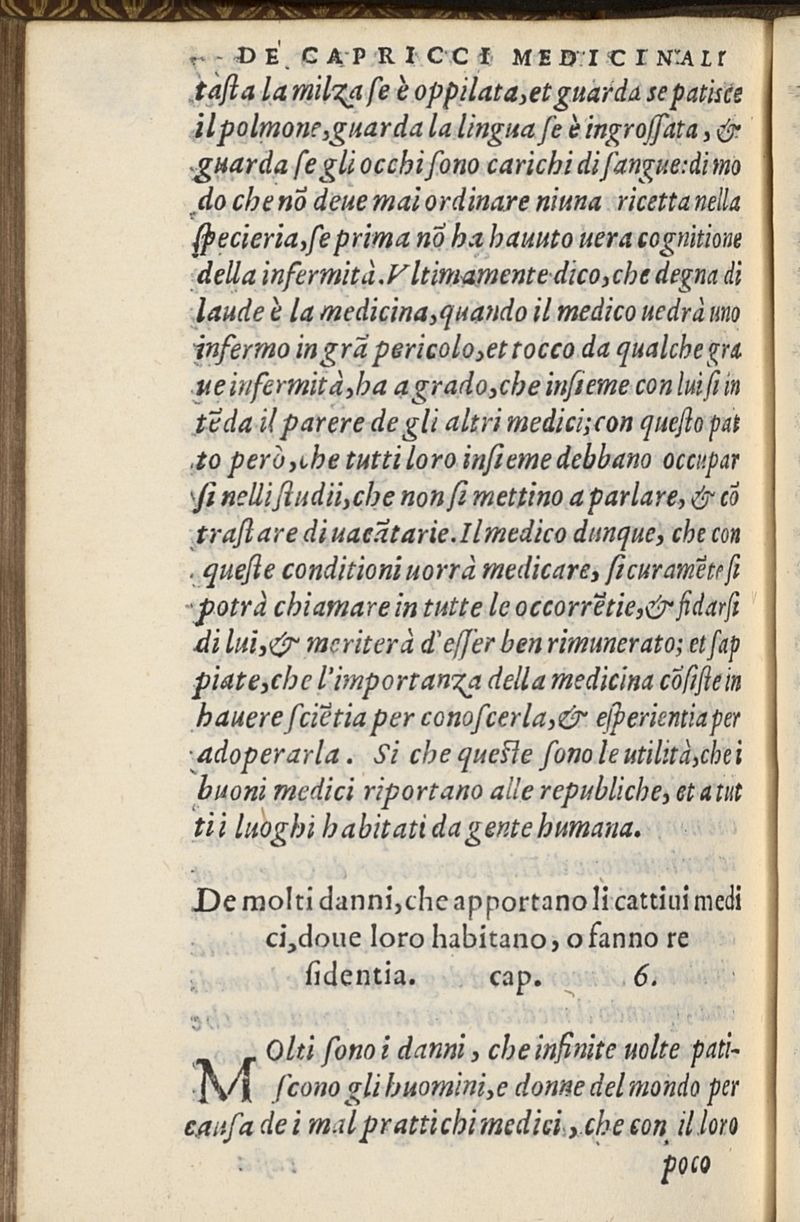 DE CAPRICCI MEDICINALI
tasta la milza se è oppilata, et guarda se patisce
il polmone, guarda la lingua se è ingrossata, &
guarda se gli occhi sono carichi di sangue: di mo
do che nõ deue mai ordinare niuna ricetta nella
specieria, se prima nõ ha hauuto uera cognitione
della infermità. Vltimamente dico, che degna di
laude è la medicina, quando il medico uedrà uno
infermo in grã pericolo, et tocco da qualche gra
ue infermità, ha a grado, che insieme con lui si in
tẽda il parere de gli altri medici; con questo pat
to però, che tutti loro insieme debbano occupar
si nelli studii, che non si mettino a parlare, & cõ
trastare di uacãtarie. Il medico dunque, che con
queste conditioni uorrà medicare, sicuramẽte si
potrà chiamare in tutte le occorrẽtie, & fidarsi
di lui, & meriterà d'esser ben rimunerato; et sap
piate, che l'importanza della medicina cõsiste in
hauere sciẽtia per conoscerla, & esperientia per
adoperarla. Si che queste sono le utilità, che i
buoni medici riportano alle republiche, et a tut
ti i luoghi habitati da gente humana.
De molti danni, che apportano li cattiui medi
ci, doue loro habitano, o fanno re
sidentia. cap. 6.
MOlti sono i danni, che infinite uolte pati-
scono gli huomini, e donne del mondo per
causa de i mal prattichi medici, che con il loro
poco